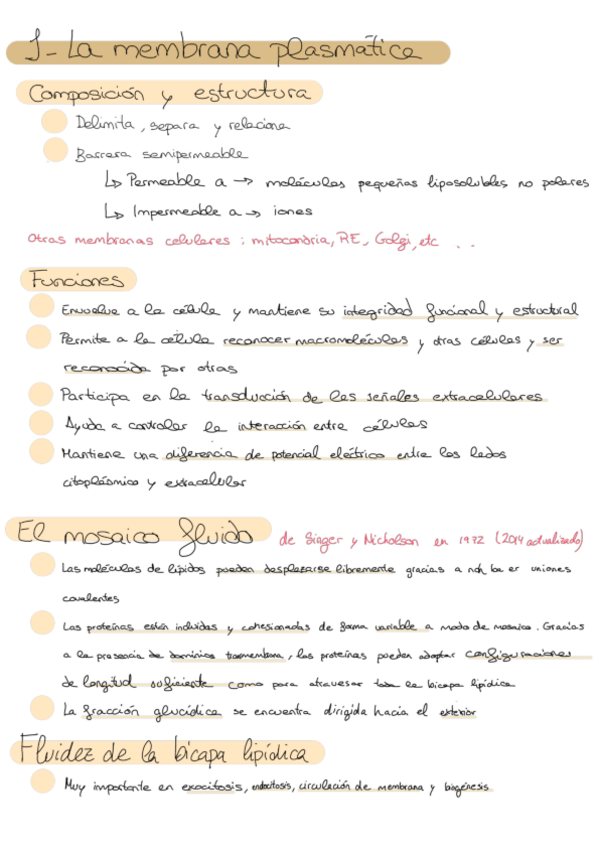 1- La membrana plasmática
Composición y estructura
Delimita, separa y relaciona
Barrera semipermeable
↳ Permeable a → moléculas pequeñas liposolubles no polares
↳ Impermeable a → iones
Otras membranas celulares : mitocondria, RE, Golgi, etc ...
Funciones
Envuelve a la célula y mantiene su integridad funcional y estructural
Permite a la célula reconocer macromoléculas y otras células y ser
reconocida por otras
Participa en la transducción de las señales extracelulares
Ayuda a controlar la interacción entre células
Mantiene una diferencia de potencial eléctrico entre los lados
citoplásmico y extracelular
El mosaico fluido de Singer y Nicholson en 1972 (2014 actualizado)
Las moléculas de lípidos pueden desplazarse libremente gracias a no haber uniones
covalentes
Las proteínas están incluidas y cohesionadas de forma variable a modo de mosaico. Gracias
a la presencia de dominios transmembrana, las proteínas pueden adoptar configuraciones
de longitud suficiente como para atravesar toda la bicapa lipídica
La fracción glucídica se encuentra dirigida hacia el exterior
Fluidez de la bicapa lipídica
Muy importante en exocitosis, endocitosis, circulación de membrana y biogénesis